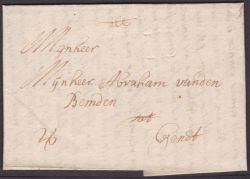 Mynheer
Mynheer Abraham vanden
Bemden
tot
Gendt